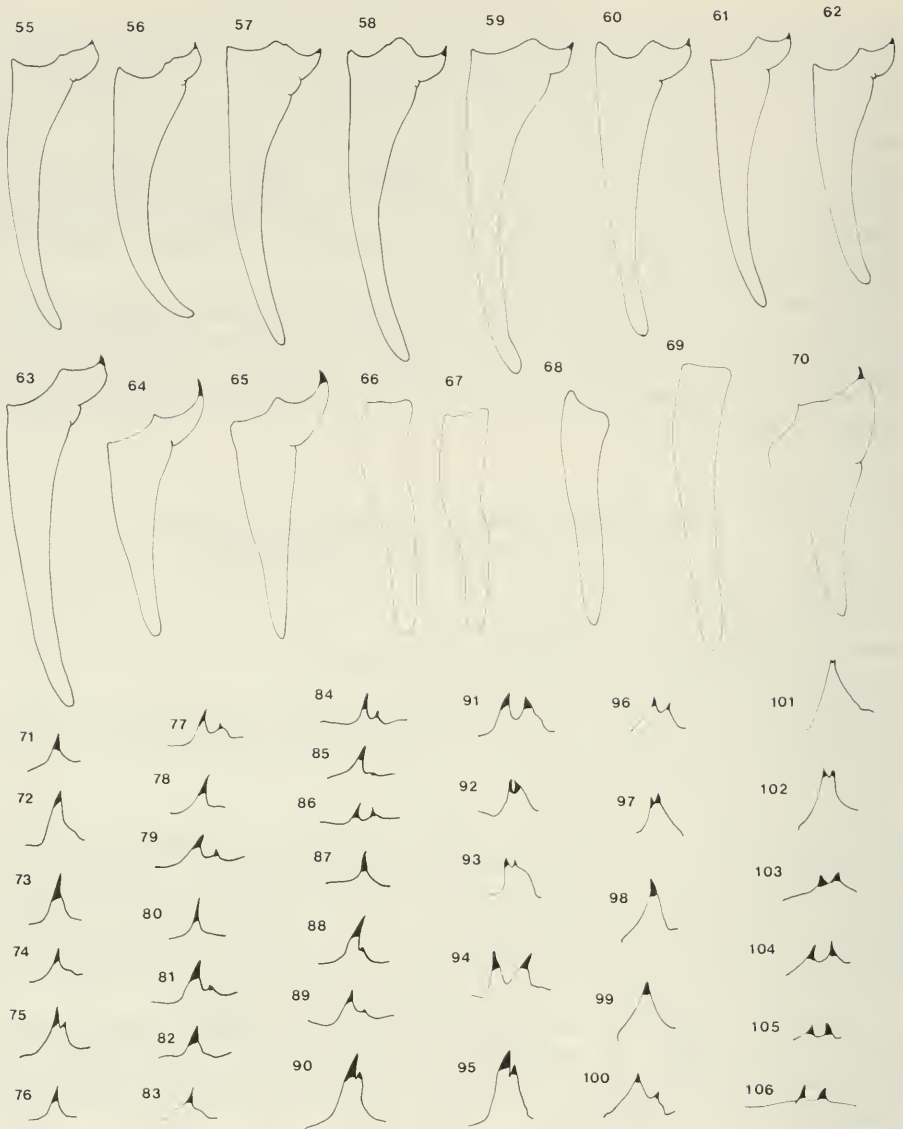 55 56 57 58 59 60 61 62
63 64 65 66 67 68 69 70
71 72 73 74 75 76
77 78 79 80 81 82 83
84 85 86 87 88 89 90
91 92 93 94 95
96 97 98 99 100
101 102 103 104 105 106